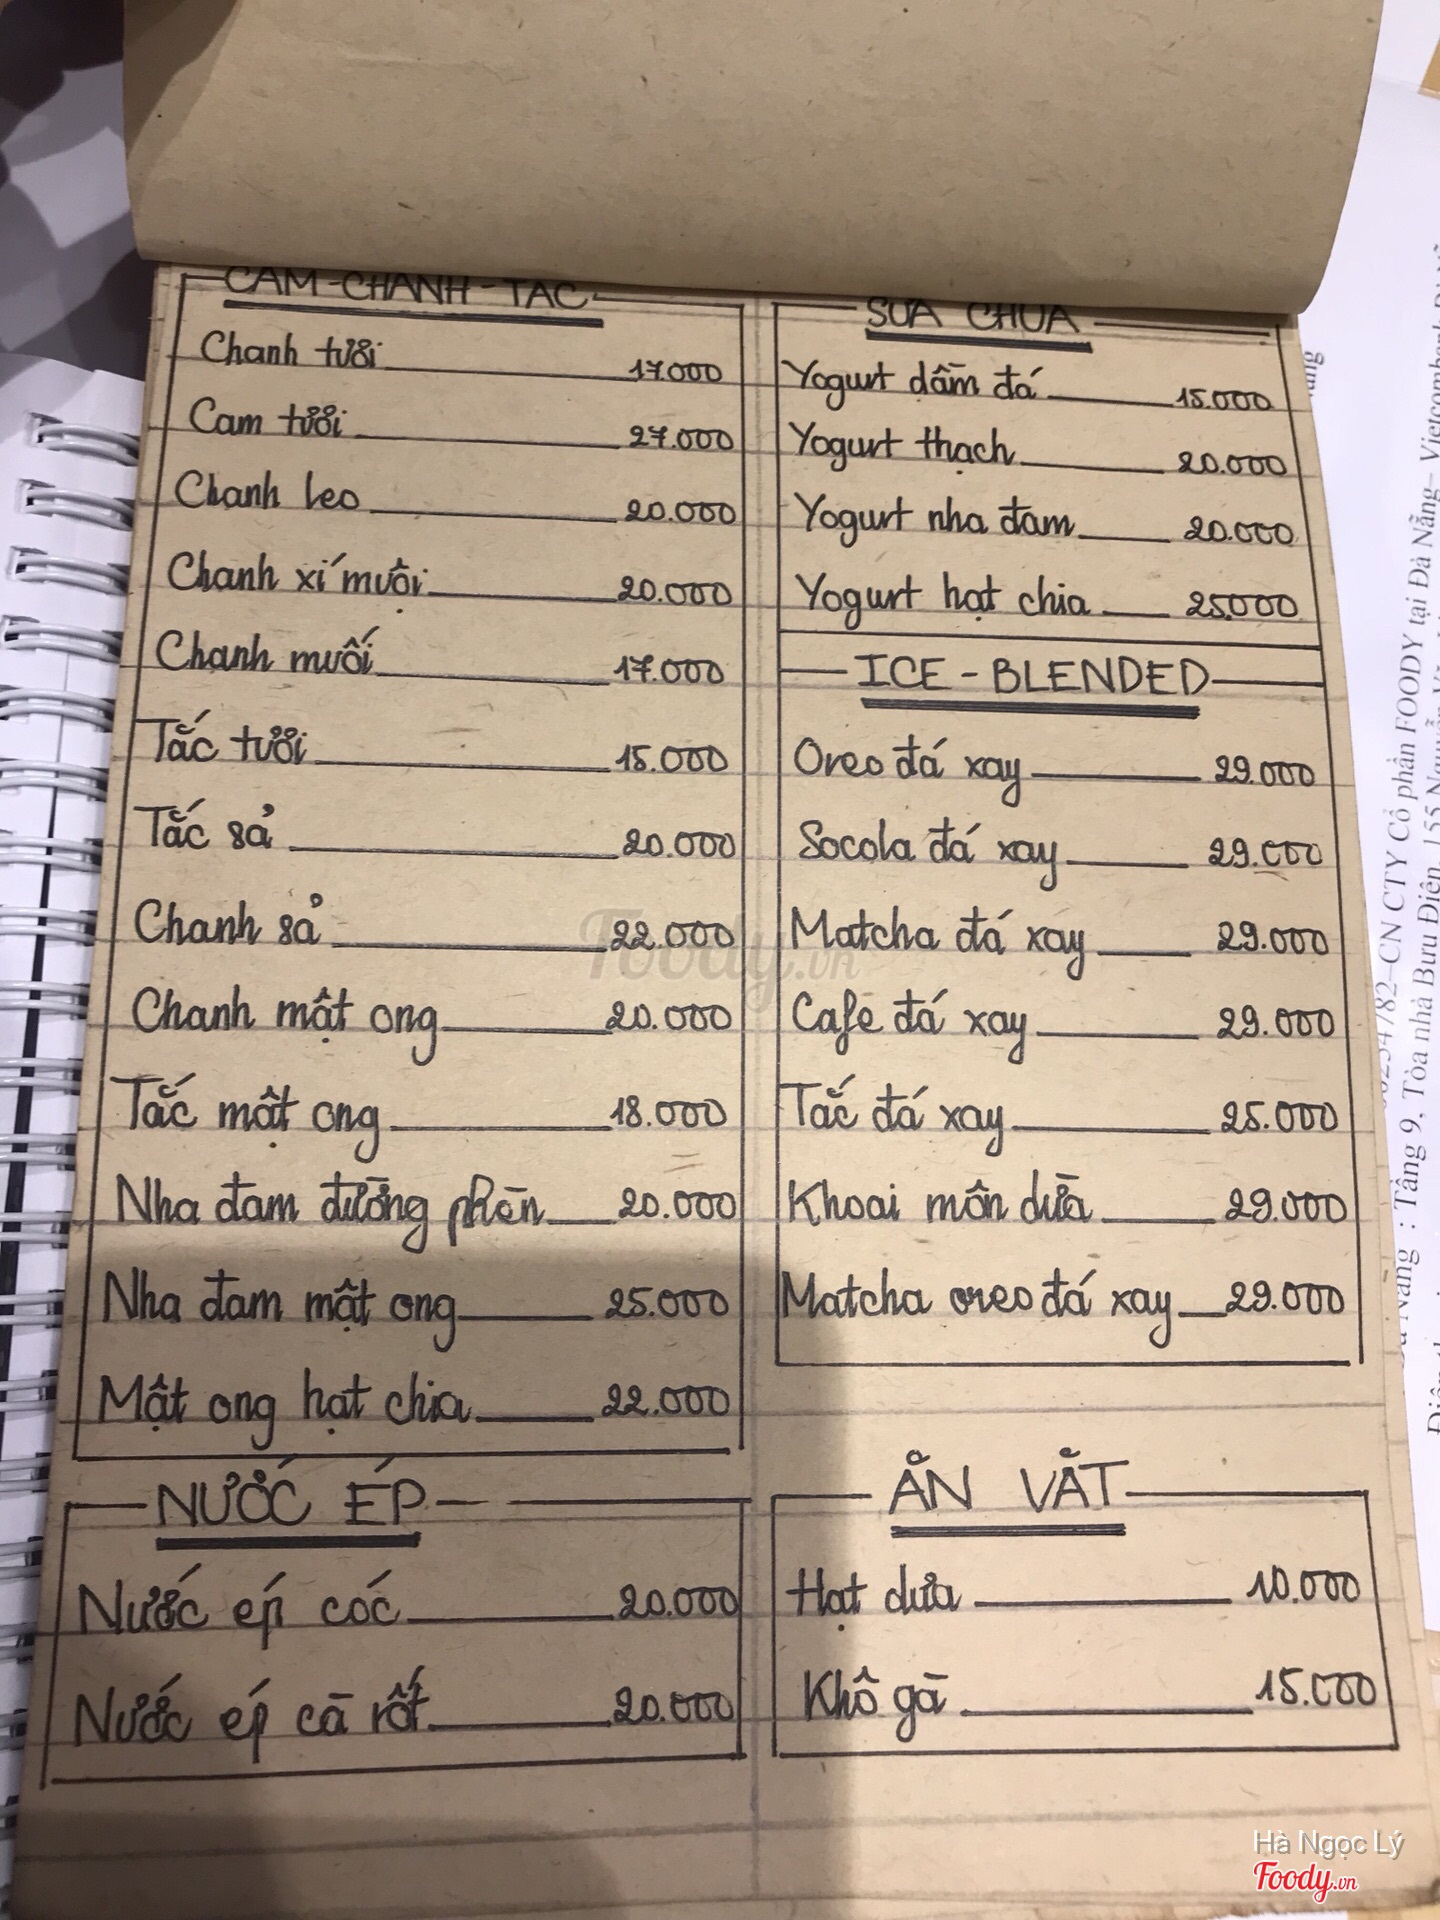 CAM-CHANH-TẮC
Chanh tươi 17.000
Cam tươi 27.000
Chanh leo 20.000
Chanh xí muội 20.000
Chanh muối 17.000
Tắc tươi 15.000
Tắc sả 20.000
Chanh sả 22.000
Chanh mật ong 20.000
Tắc mật ong 18.000
Nha đam đường phèn 20.000
Nha đam mật ong 25.000
Mật ong hạt chia 22.000
NƯỚC ÉP
Nước ép cóc 20.000
Nước ép cà rốt 20.000
SỮA CHUA
Yogurt dầm đá 15.000
Yogurt thạch 20.000
Yogurt nha đam 20.000
Yogurt hạt chia 25.000
ICE-BLENDED
Oreo đá xay 29.000
Socola đá xay 29.000
Matcha đá xay 29.000
Cafe đá xay 29.000
Tắc đá xay 25.000
Khoai môn dừa 29.000
Matcha oreo đá xay 29.000
ĂN VẶT
Hạt dưa 10.000
Khô gà 15.000
CN CTY Cổ phần FOODY tại Đà Nẵng– Vietcombank
: Tầng 9, Tòa nhà Bưu Điện, 155 Nguyễn
Foody.vn
Hà Ngọc Lý
Foody.vn